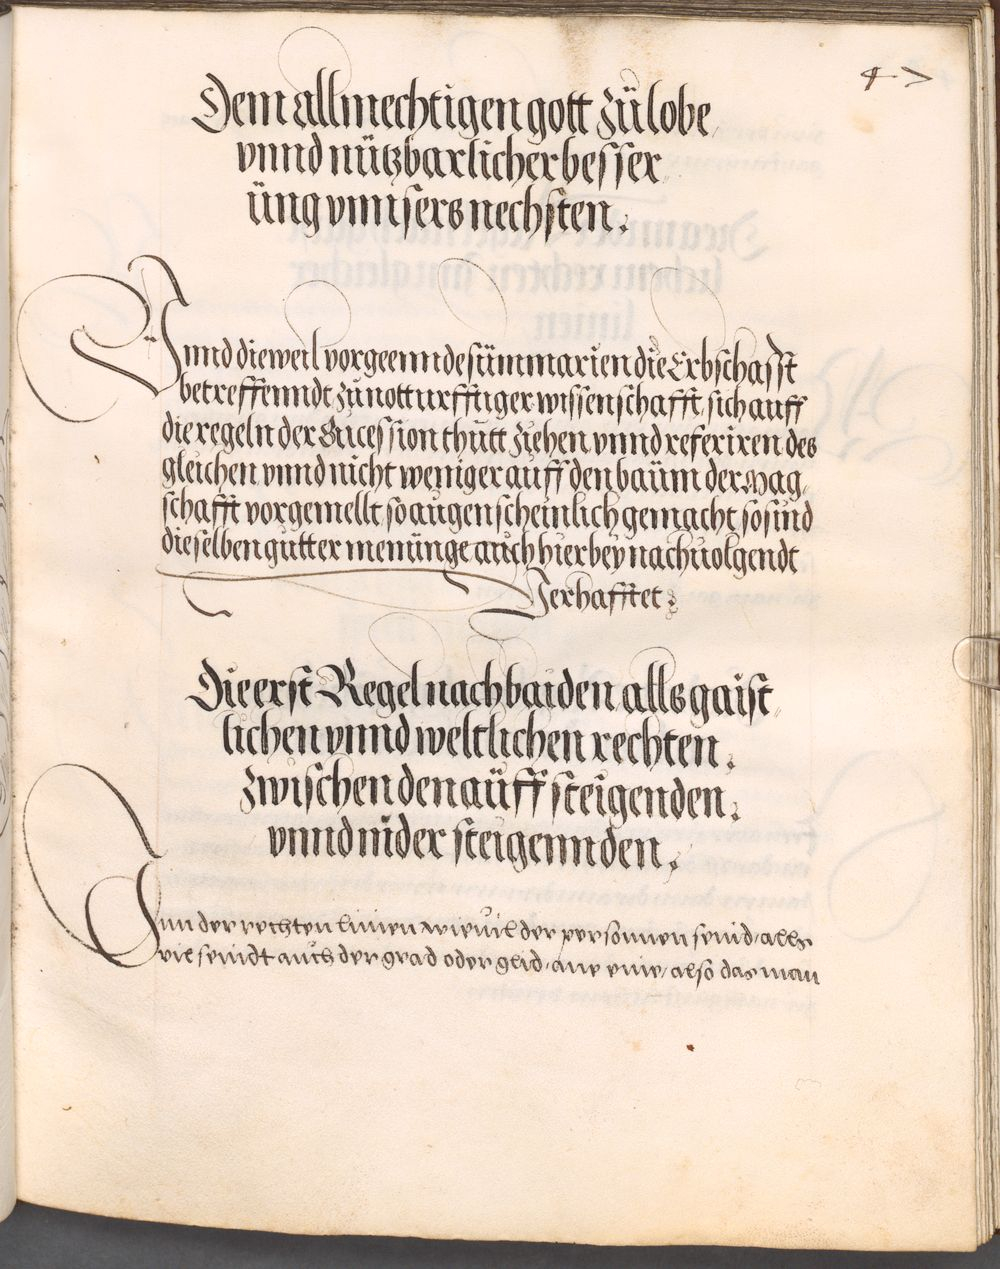 47
Dem allmechtigen gott zü lobe
vnnd nützbarlicher besser
üng vnnsers nechsten.
Vnnd dieweil vorgeennde sümmarien die Erbschafft
betreffenndt zu notturfftiger wissenschafft, sich auff
die regeln der Sucession thütt ziehen vnnd referiren des
gleichen vnnd nicht weniger auff den baüm der Mag,
schafft vorgemellt, so augenscheinlich gemacht, so sind
dieselben gutter menünge auch hierbey nachuolgendt
Verhafftet.
Die erst Regel nach baiden, alls gaist,
lichen vnnd weltlichen rechten.
zwischen den aüff steigenden.
vnnd nider steigennden.
Inn der rechten linien wieuil der personnen seind, alls
vil seindt auch der grad oder glid, ane eine, also das man